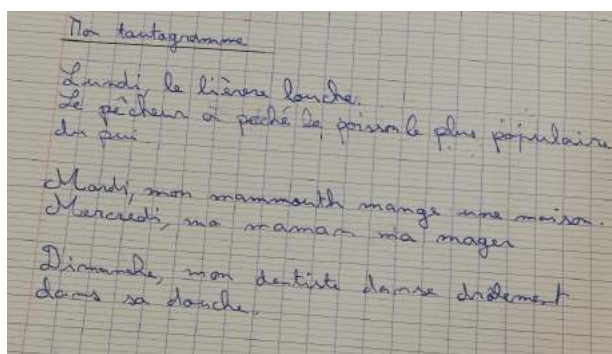 Mon tautogramme
Lundi, le lièvre louche.
Le pêcheur a pêché le poisson le plus populaire
du pui.
Mardi, mon mammouth mange une maison.
Mercredi, ma maman ma mager
Dimanche, mon dentiste danse drôlement
dans sa douche.